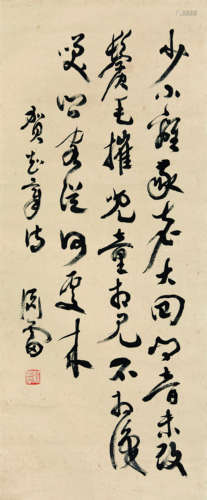 少小離家老大回鄉音未改
鬢毛摧兒童相見不相識
咲問客從何處来
賀知章詩